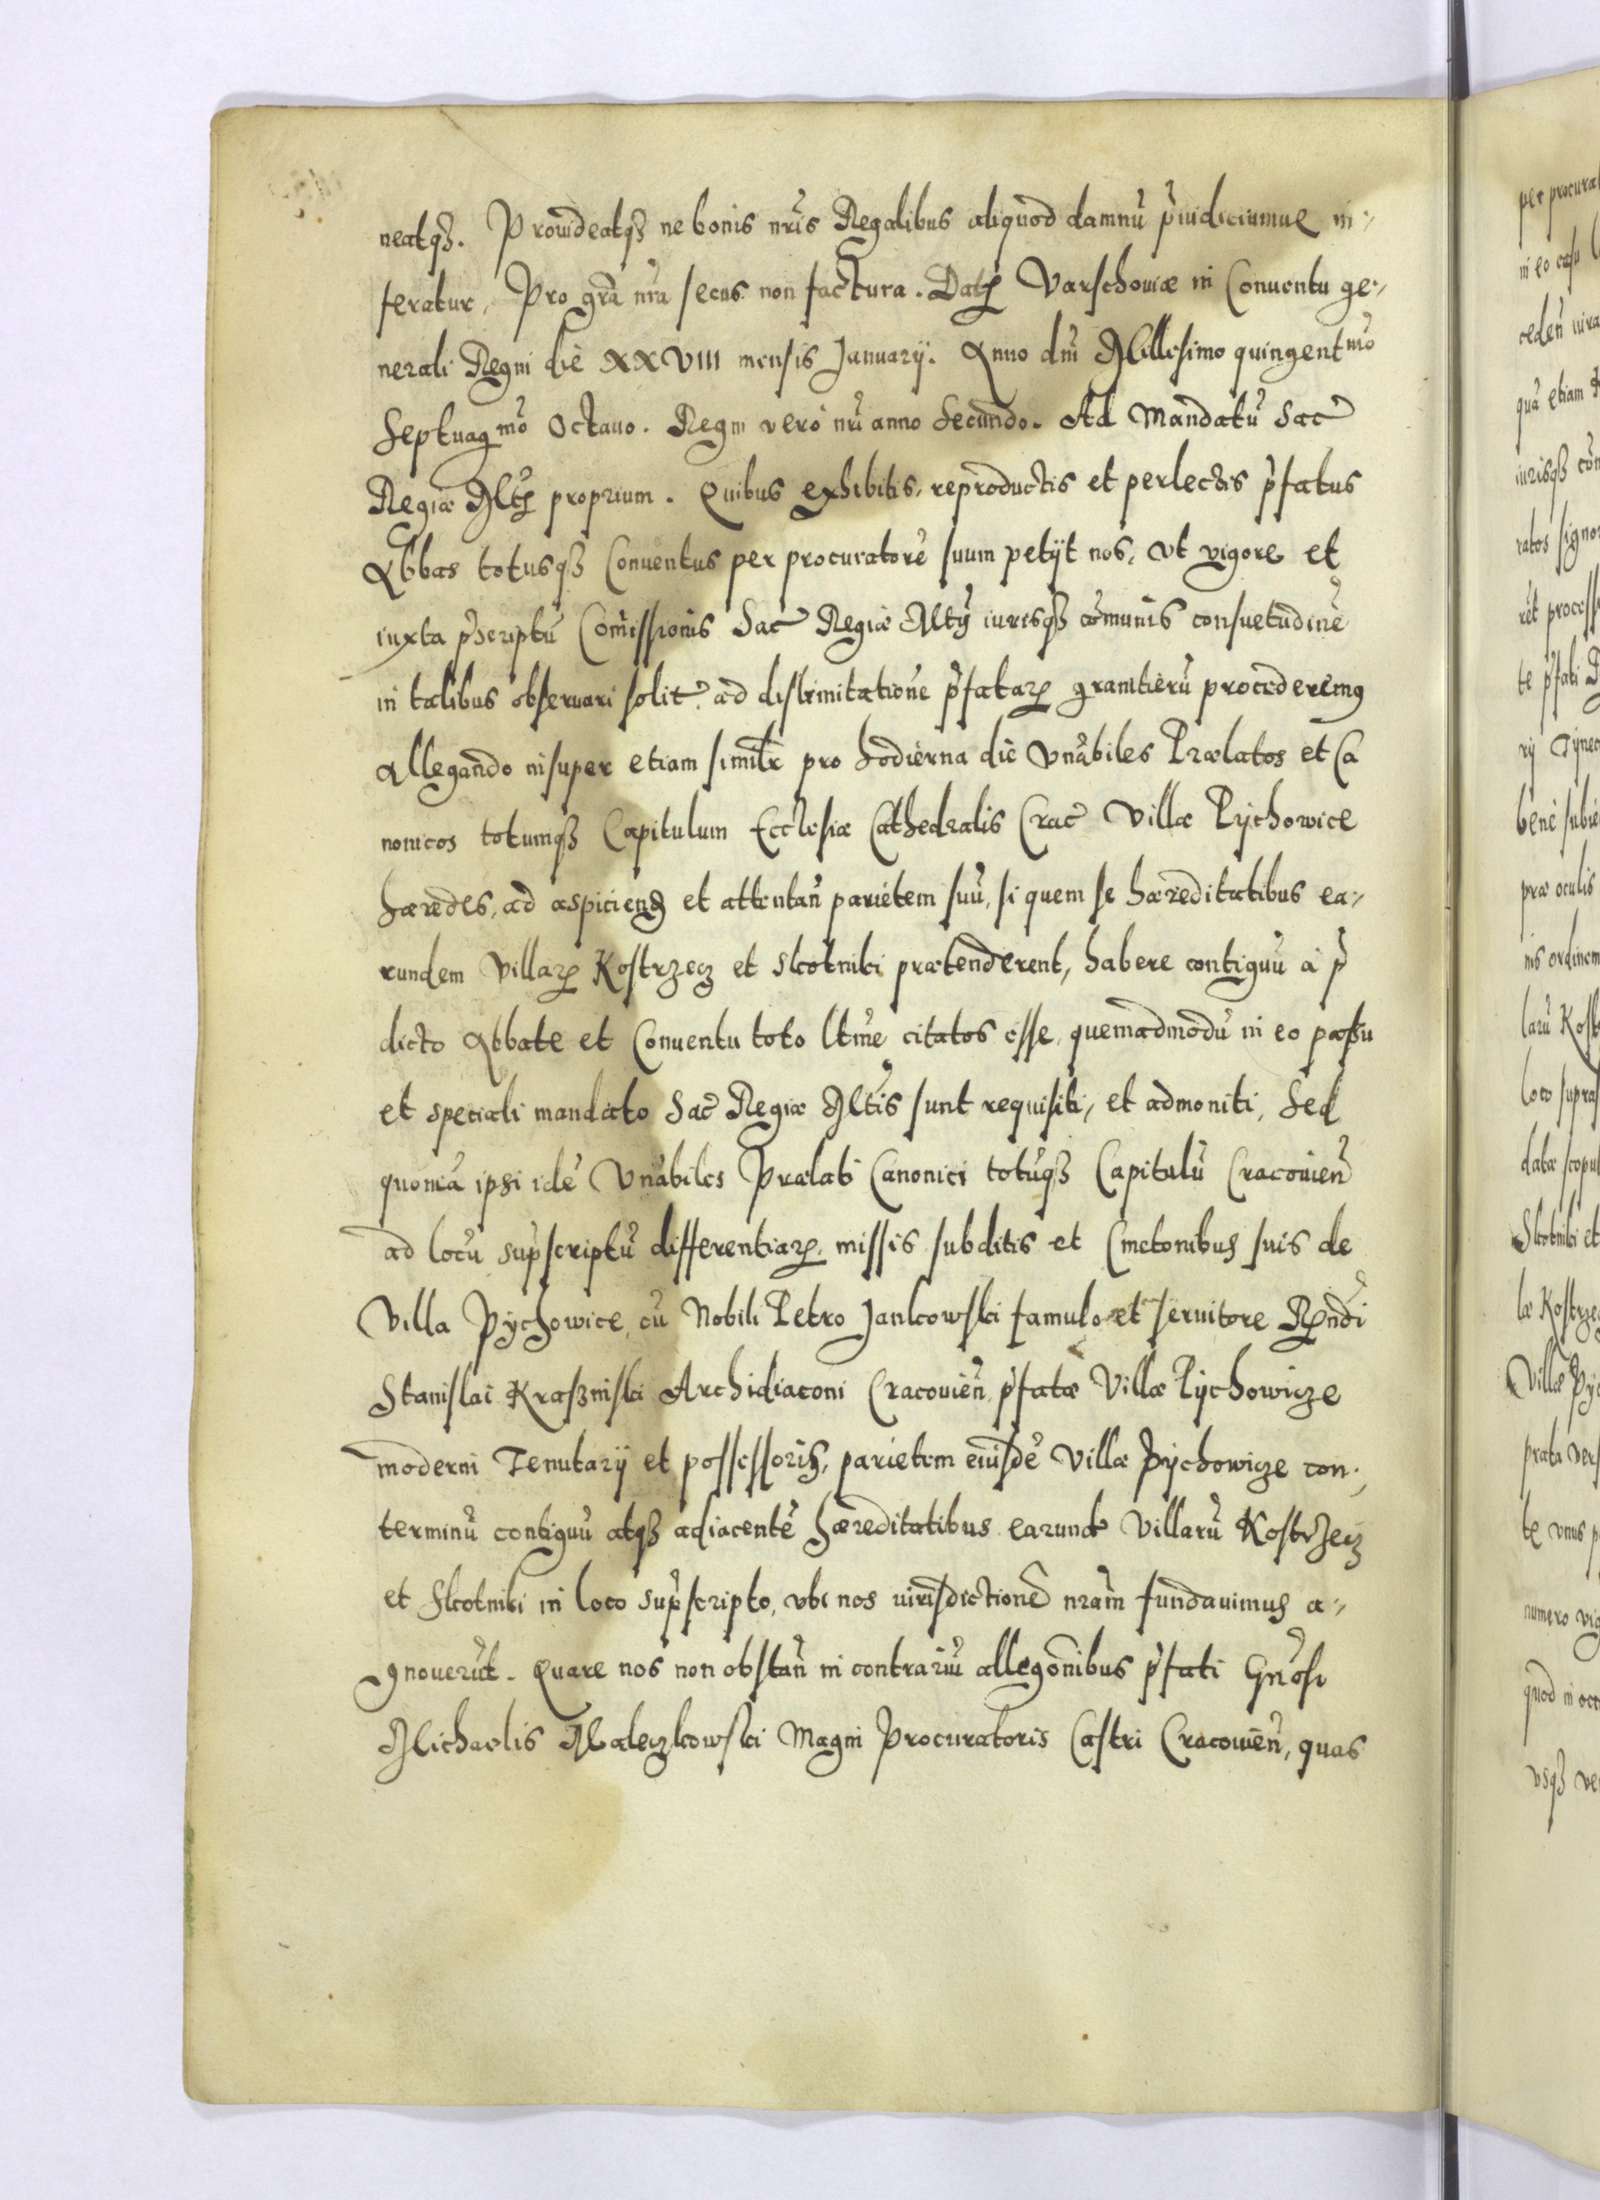 neatqȝ. Prouideatqȝ ne bonis nr̃is Regalibus aliquod damnũ p̃iudiciumue in-
feratur, Pro gr̃a nr̃a secus non factura. Datꝫ Varschouiæ in Conuentu ge-
nerali Regni die XXVIII mensis Januarij. Anno dñi Millesimo quingentmõ
Septuagmõ Octauo. Regni vero nr̃i anno Secundo. Ad Mandatũ Sac̃
Regiæ Mltꝫ proprium. Quibus exhibitis, reproductis et perlectis p̃fatus
Abbas totusqȝ Conuentus per procuratorẽ suum petijt nos, vt vigore et
iuxta p̃scriptũ Com̃issionis Sac̃ Regiæ Mltꝫ iurisqȝ cõmunis consuetudinẽ
in talibus obseruari solit̃ ad dislimitationẽ p̃fataꝝ granitierũ procederemꝯ
Allegando insuper etiam similr̃ pro hodierna die Vnãbiles Prælatos et Ca
nonicos totumqȝ Capitulum Ecclesiæ Cathedralis Crac̃ Villæ Pychowice
hæredes, ad aspiciend̃ et attentañ parietem suũ, si quem se hæreditatibus ea-
rundem Villaꝝ Kostrzecz et Skotniki prætenderent, habere contiguũ a p̃
dicto Abbate et Conuentu toto ltm̃e citatos esse, quemadmodũ in eo passu
et speciali mandato Sac̃ Regiæ Mltis sunt requisiti, et admoniti, Sed
quoniã ipsi idẽ Vnãbiles Prælati Canonici totũqȝ Capitulũ Cracouieñ
ad locũ sup̃scriptũ differentiaꝝ, missis subditis et Cmetonibus suis de
Villa Pychowice, cũ Nobili Petro Jankowski famulo et seruitore Rñdi
Stanislai Krasznski Archidiaconi Cracouieñ p̃fatæ Villæ Pychowicze
moderni Tenutarij et possessoris, parietem eiusdẽ Villæ Pychowicze con-
terminũ contiguũ atqȝ adiacentẽ hæreditatibus earund̃ Villarũ Kostrzecz
et Skotniki in loco sup̃scripto, vbi nos iurisdictionẽ nr̃am fundauimus a-
gnouerũt. Quare nos non obstañ in contrariũ allegoñibus p̃fati Gñosi
Michaelis Maleczkowski Magni Procuratoris Castri Cracouieñ, quas